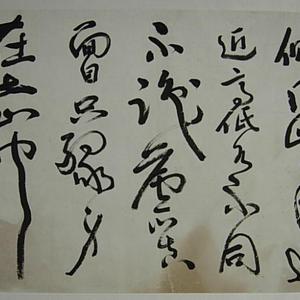 近高低各不同
不識廬山真
面目只緣身
在此山中